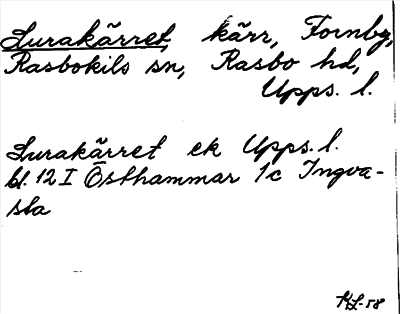 Lurakärret, kärr, Fornby,
Rasbokils sn, Rasbo hd,
Upps. l.
Lurakärret ek Upps. l.
bl. 12 I Östhammar 1c Ingva-
sta
KL-58